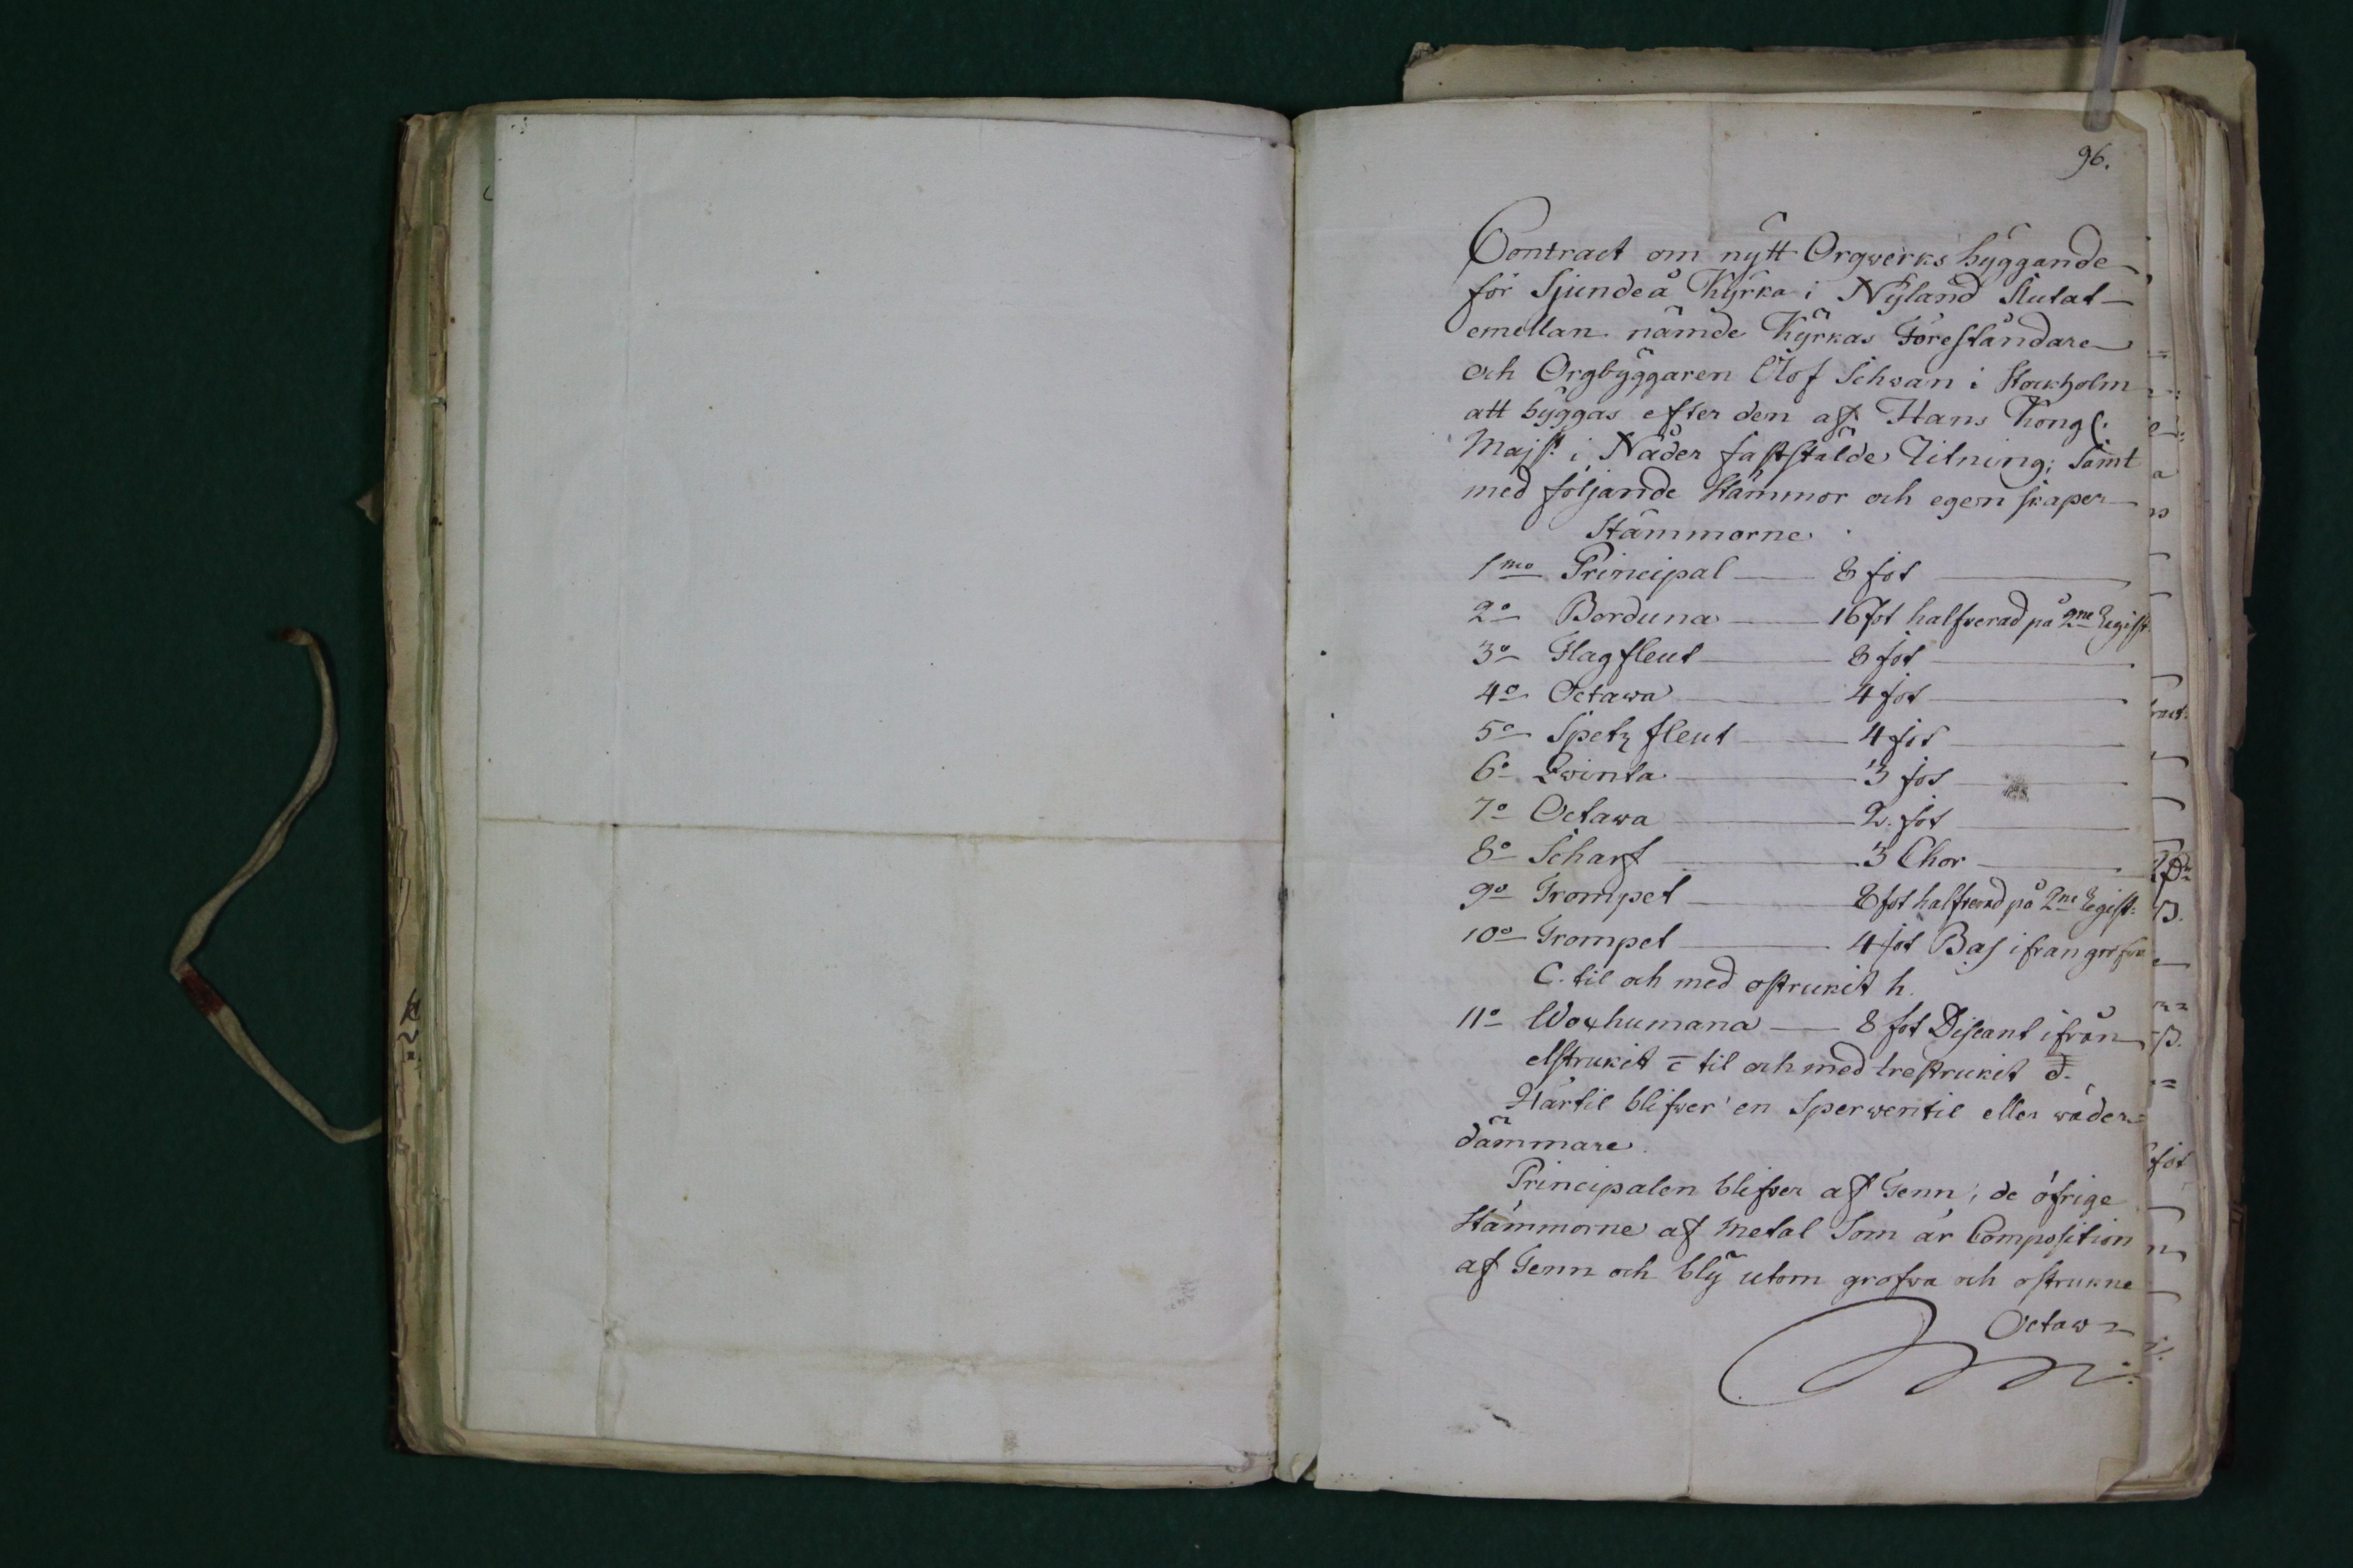 96.
Contract om nytt Orgwerks byggande
för Sjundeå Kyrka i Nyland Slutat
emellan nämde Kyrkas Föreståndare
och Orgbyggaren Olof Schwan i Stockholm
att byggas efter den af Hans Kongl:
Majst: i Nåder faststälde Ritning; samt
med följande Stämmor och egenskaper
Stämmorne
1mo Principal 8 fot
2o Borduna 16 fot halfverad på 2ne Regist:
3o Flagfleut 8 fot
4o Octawa 4 fot
5o Spetz fleut 4 fot
6o Qwinta 3 fot
7o Octawa 2. fot
8o Scharf 3 Chor
9o Trompet 8 fot halfverad på 2ne Regist:
10o Trompet 4 fot Bas ifrån grofva
C. til och med ostrukit h.
11o Woxhumana 8 fot Discant ifrån
etstrukit c̄ til och med trestrukit d.
Härtil blifver en Sperwentil eller wäder=
dämmare.
Principalen blifver af Tenn; de öfrige
Stämmorne af Metal Som är Composition
af Tenn och bly utom grofva och ostrukne
Octaw